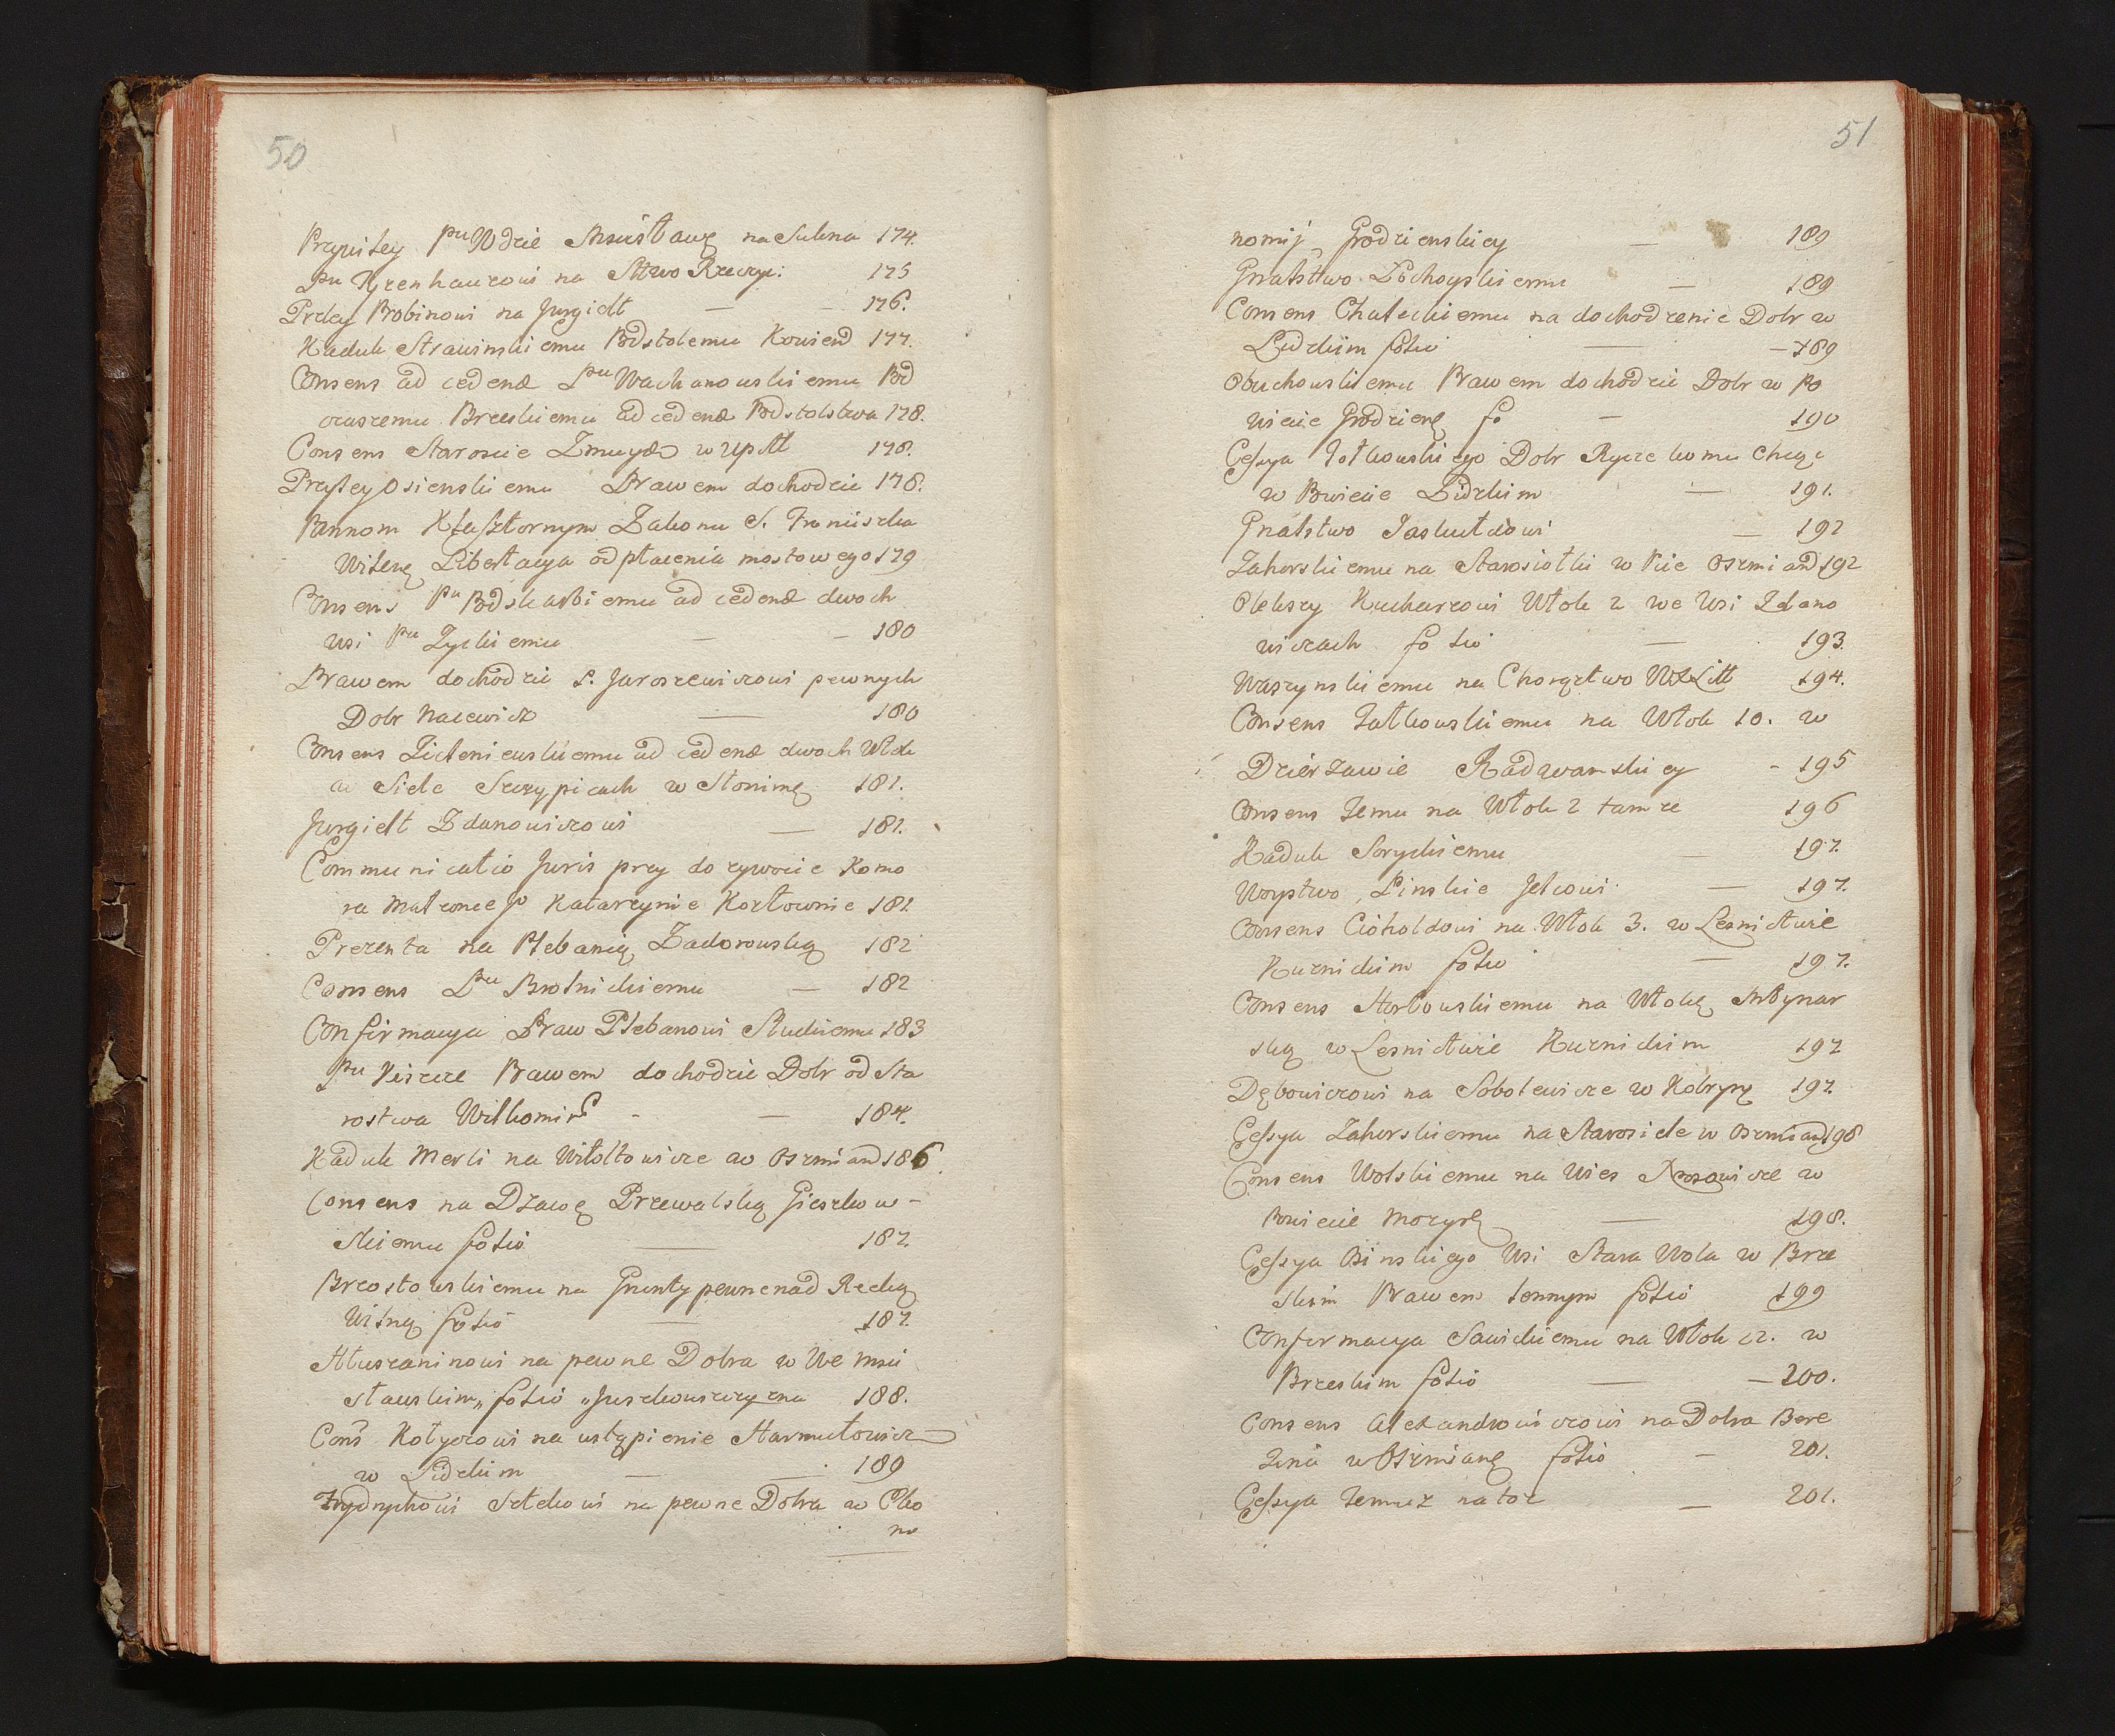 50
Przywiley Pu Wdzie Mscisławę na Sukna 174.
Pu Tyzenhauzowi na Sttwo Rzeczyc: 175
Przley Bobinowi na Jurgielt — 176.
Kaduk Strawinskiemu Podstolemu Kowień 177.
Consens ad cedend Pu Wachanowskiemu Pod
czaszemu Brzeskiemu ad cedend Podstolstwa 178.
Consens Staroscie Zmuydz w Upitt 178.
Przyley Osienskiemu Prawem dochodzić 178.
Pannom Klasztornym Zakonu S. Franciszka
Wileng Libertacya od płacenia mostowego 179
Consens Pu Podskarbiemu ad cedend dwoch
wsi Pu Zyckiemu — 180
Prawem dochodzić P. Jaroszewiczowi pewnych
Dobr Nacewicz — 180
Consens ad cedend dwoch Włok
w Siele Szczypicach w Słonimę 181.
Jurgielt Zdanowiczowi — 181.
Communicatio Juris przy dozywocie Komo
ra Matronce Jo Katarzynie Kozłownie 181.
Prezenta na Plebanią Zadorowską 182
Consens Pu Brotnickiemu — 182
Confirmacya Praw Plebanowi Słuckiemu 183
Pu Kiszce Prawem dochodzić Dobr od Sta
rostwa Wilkomirs — 184.
Kaduk Merli na Witoltowicze w Oszmiand 186.
Consens na Dzawę Przewalską Gieszkow-
skiemu folio — 187.
Brzostowskiemu na Grunty pewne nad Rzeką
Wilną folio — 187.
Hłuszaninowi na pewne Dobra w We Msci
sławskim„ folio „Juszkowszczyzna 188.
Cons Kotyczowi na ustąpienie Harmułowicz
w Lidzkim — 189
Frydrychowi Sztekowi na pewne Dobra w Eko
no
51
nomij Grodzienskiey — 189
Gnatstwo Pochoyskiemu — 189
Consens Chaleckiemu na dochodzenie Dobr w
Lidzkim folio — 189
Obuchowskiemu Prawem dochodzić Dobr w Po
wiecie Grodzieng fo — 190
Cessya Zołkowskiego Dobr Ryczekomu Chcąc
w Powiecie Lidzkim — 191.
Gnatstwo Jaskułdowi — 192
Zahorskiemu na Starosiołki w Pcie Oszmiand 192
Olekszy Kucharzowi Włok 2 we Wsi Zdano
wiczach folio — 193.
Waszynskiemu na Chorąztwo WXLitt 194.
Consens Zalkowskiemu na Włok 10. w
Dzierzawie Radwanskiey - 195
Consens Temu na Włok 2 tamze 196
Kaduk Soryckiemu — 197.
Woystwo Pinskie Jelcowi — 197.
Consens Cioholdowi na Włok 3. w Lesnictwie
Kurnickim folio — 197.
Consens Horbowskiemu na Włokę Młynar
ską w Lesnictwie Kurnickim 197
Dębowiczowi na Sobolewicze w Kobryny 197.
Cessya Zahorskiemu na Starosiele w Oszmiand 198
Consens Wolskiemu na Wies w
Powiecie Mozyrs — 198.
Cessya Osinskiego Wsi Stara Wola w Brze
skim Prawem lennym folio 199
Confirmacya Sawickiemu na Włok 12. w
Brzeskim folio — 200.
Consens Alexandrowiczowi na Dobra Bere
zina w Oszmiang folio — 201.
Cessya Temuz na toz — 201.